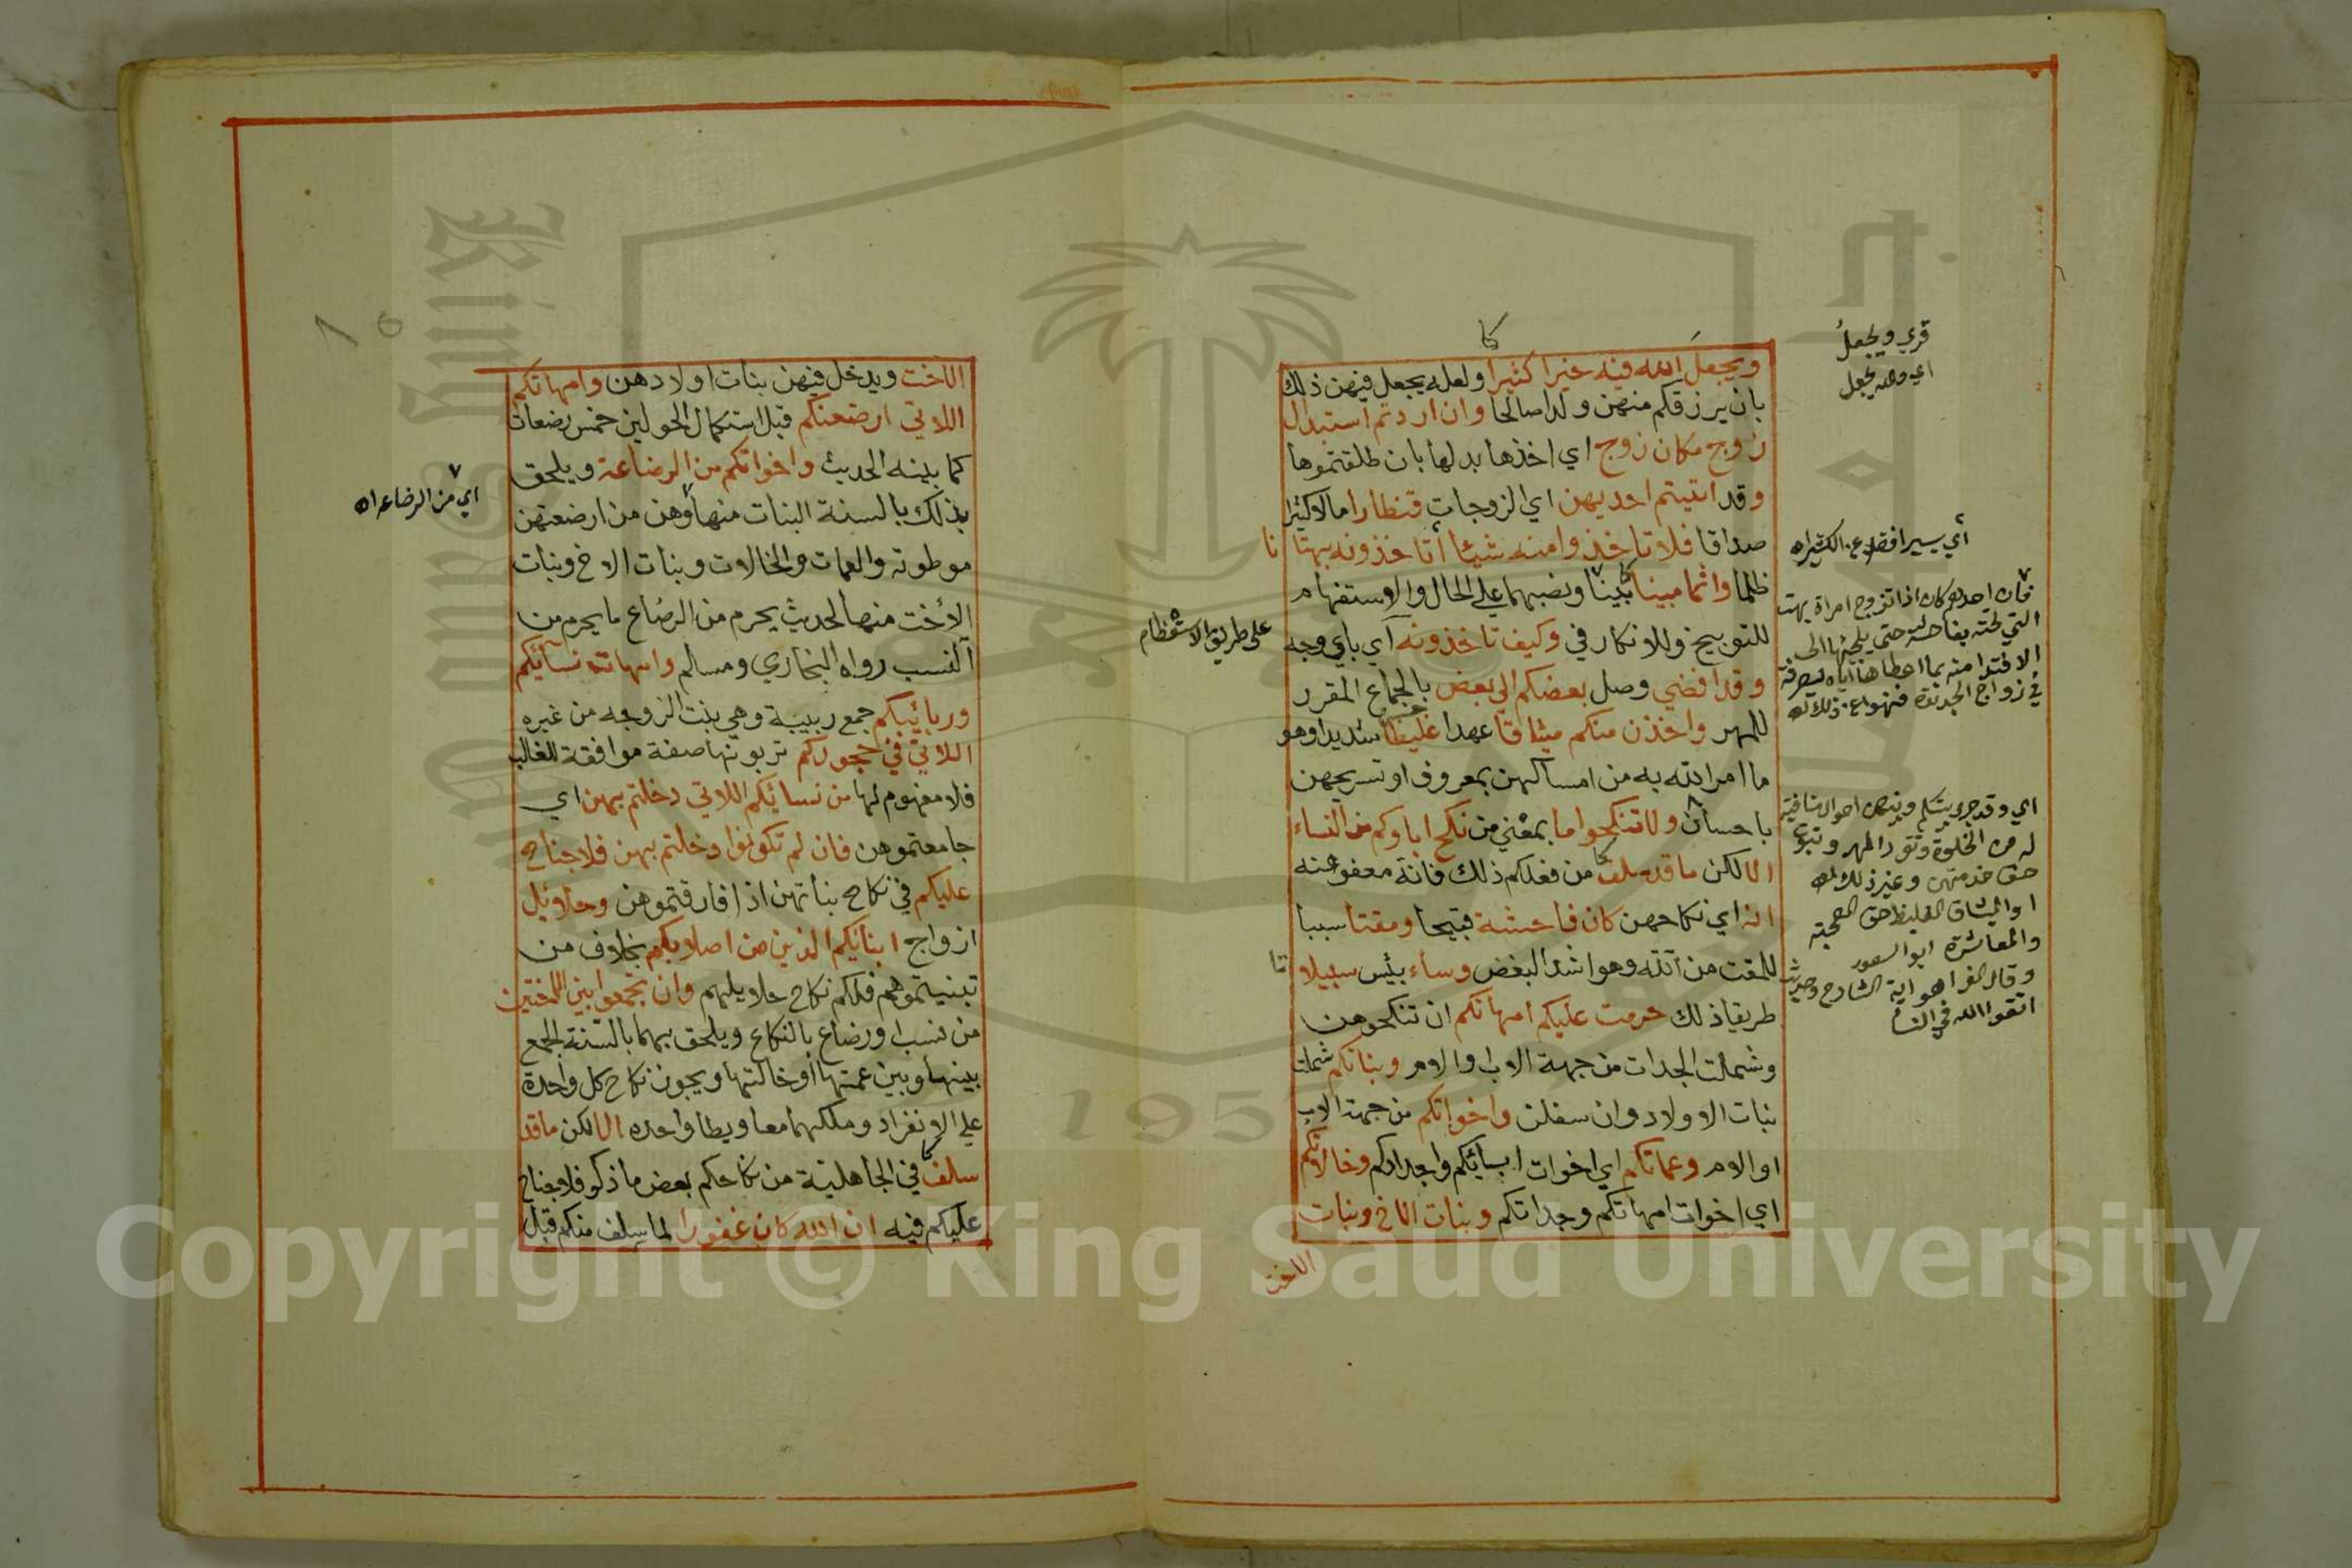 ويجعل الله فيه خيرا كثيرا ولعله يجعل فيهن ذلك
بان يرزقكم منهن ولدا صالحا وان اردتم استبدال
زوج مكان زوج اي اخذها بدلها بان طلقتموها
وقد اتيتم احديهن اي الزوجات قنطارا مالا كثيرا
صداقا فلا تاخذوا منه شيئا أتاخذونه بهتانا
ظلما واثما مبينا بينا ونصبهما علي الحال والاستفهام
للتوبيخ وللانكار في وكيف تاخذونه اي باي وجه
وقد افضي وصل بعضكم الى بعض بالجماع المقرر
للمهر واخذن منكم ميثاقا عهدا غليظا شديدا وهو
ما امر الله به من امساكهن بمعروف او تسريحهن
باحسان ولا تنكحوا ما بمعني من نكح اباوكم من النساء
الا لكن ما قد سلف من فعلكم ذلك فانه معفو عنه
انه اي نكاحهن كان فاحشة قبيحا ومقتا سببا
للمقت من الله وهو اشد البغض وساء بئس سبيلا
طريقا ذلك حرمت عليكم امهاتكم ان تنكحوهن
وشملت الجدات من جهة الاب والام وبناتكم شملت
بنات الاولاد وان سفلن واخواتكم من جهة الاب
او الام وعماتكم اي اخوات ابائكم واجدادكم وخالاتكم
اي اخوات امهاتكم وجداتكم وبنات الاخ وبنات
الاخت
قري ويجعل
اي والله يجعل
أي يسيرا فضلا عن الكثير اه
فان احدهم كان اذا تزوج امراة بهت
التي تحته بفاحشة حتى يلجئها الى
الافتدا منه بما اعطاها اياه ليصرفه
في زواج الجديدة فنهوا عن ذلك اه
اي وقد جرى بينكم وبينهن احوال منافية
له من الخلوة وتقرر المهر وثبوت
حق خدمتهن وغير ذلك اه
او الميثاق الغليظ حق الصحبة
والمعاشرة ابو السعود
اتقوا الله في النسا
على طريق الاستعظام
الاخت ويدخل فيهن بنات اولادهن وامهاتكم
اللاتي ارضعنكم قبل استكمال الحولين خمس رضعات
كما بينه الحديث واخواتكم من الرضاعة ويلحق
بذلك بالسنة البنات منها وهن من ارضعتهن
موطوته والعمات والخالات وبنات الاخ وبنات
الأخت منها لحديث يحرم من الرضاع ما يحرم من
النسب رواه البخاري ومسلم وامهات نسائكم
وربائيبكم جمع ربيبة وهي بنت الزوجه من غيره
اللاتي في حجوركم تربونها صفة موافقة للغالب
فلا مفهوم لها من نسائيكم اللاتي دخلتم بهن اي
جامعتموهن فان لم تكونوا دخلتم بهن فلا جناح
عليكم في نكاح بناتهن اذا فارقتموهن وحلائيل
ازواج ابنائكم الذين من اصلابكم بخلاف من
تبنيتموهم فلكم نكاح حلايلهم وان تجمعوا بين الاختين
من نسب او رضاع بالنكاح ويلحق بهما بالسنة الجمع
بينها وبين عمتها أو خالتها ويجوز نكاح كل واحدة
علي الانفراد وملكهما معا ويطا واحده الا لكن ما قد
سلف في الجاهلية من نكاحكم بعض ما ذكر فلا جناح
عليكم فيه ان الله كان غفورا لما سلف منكم قبل
اي من الرضاعه اه
Copyright © King Saud University
195